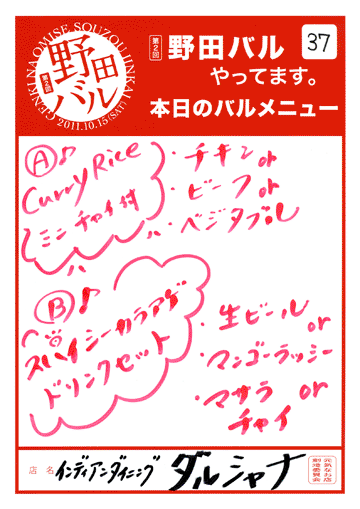 GENKI NA OMISE SOUZOU JINKAI
第2回
野田
バル
2011.10.15(SAT)
第2回 野田バル 37
やってます。
本日のバルメニュー
Ⓐ♪
Curry Rice
ミニチャイ付
・チキン or
・ビーフ or
・ベジタブル
Ⓑ♪
スパイシーカラアゲ
ドリンクセット
・生ビール or
・マンゴーラッシー
・マサラ or
チャイ
店名 インディアンダイニング ダルシャナ
元気なお店
創造委員会